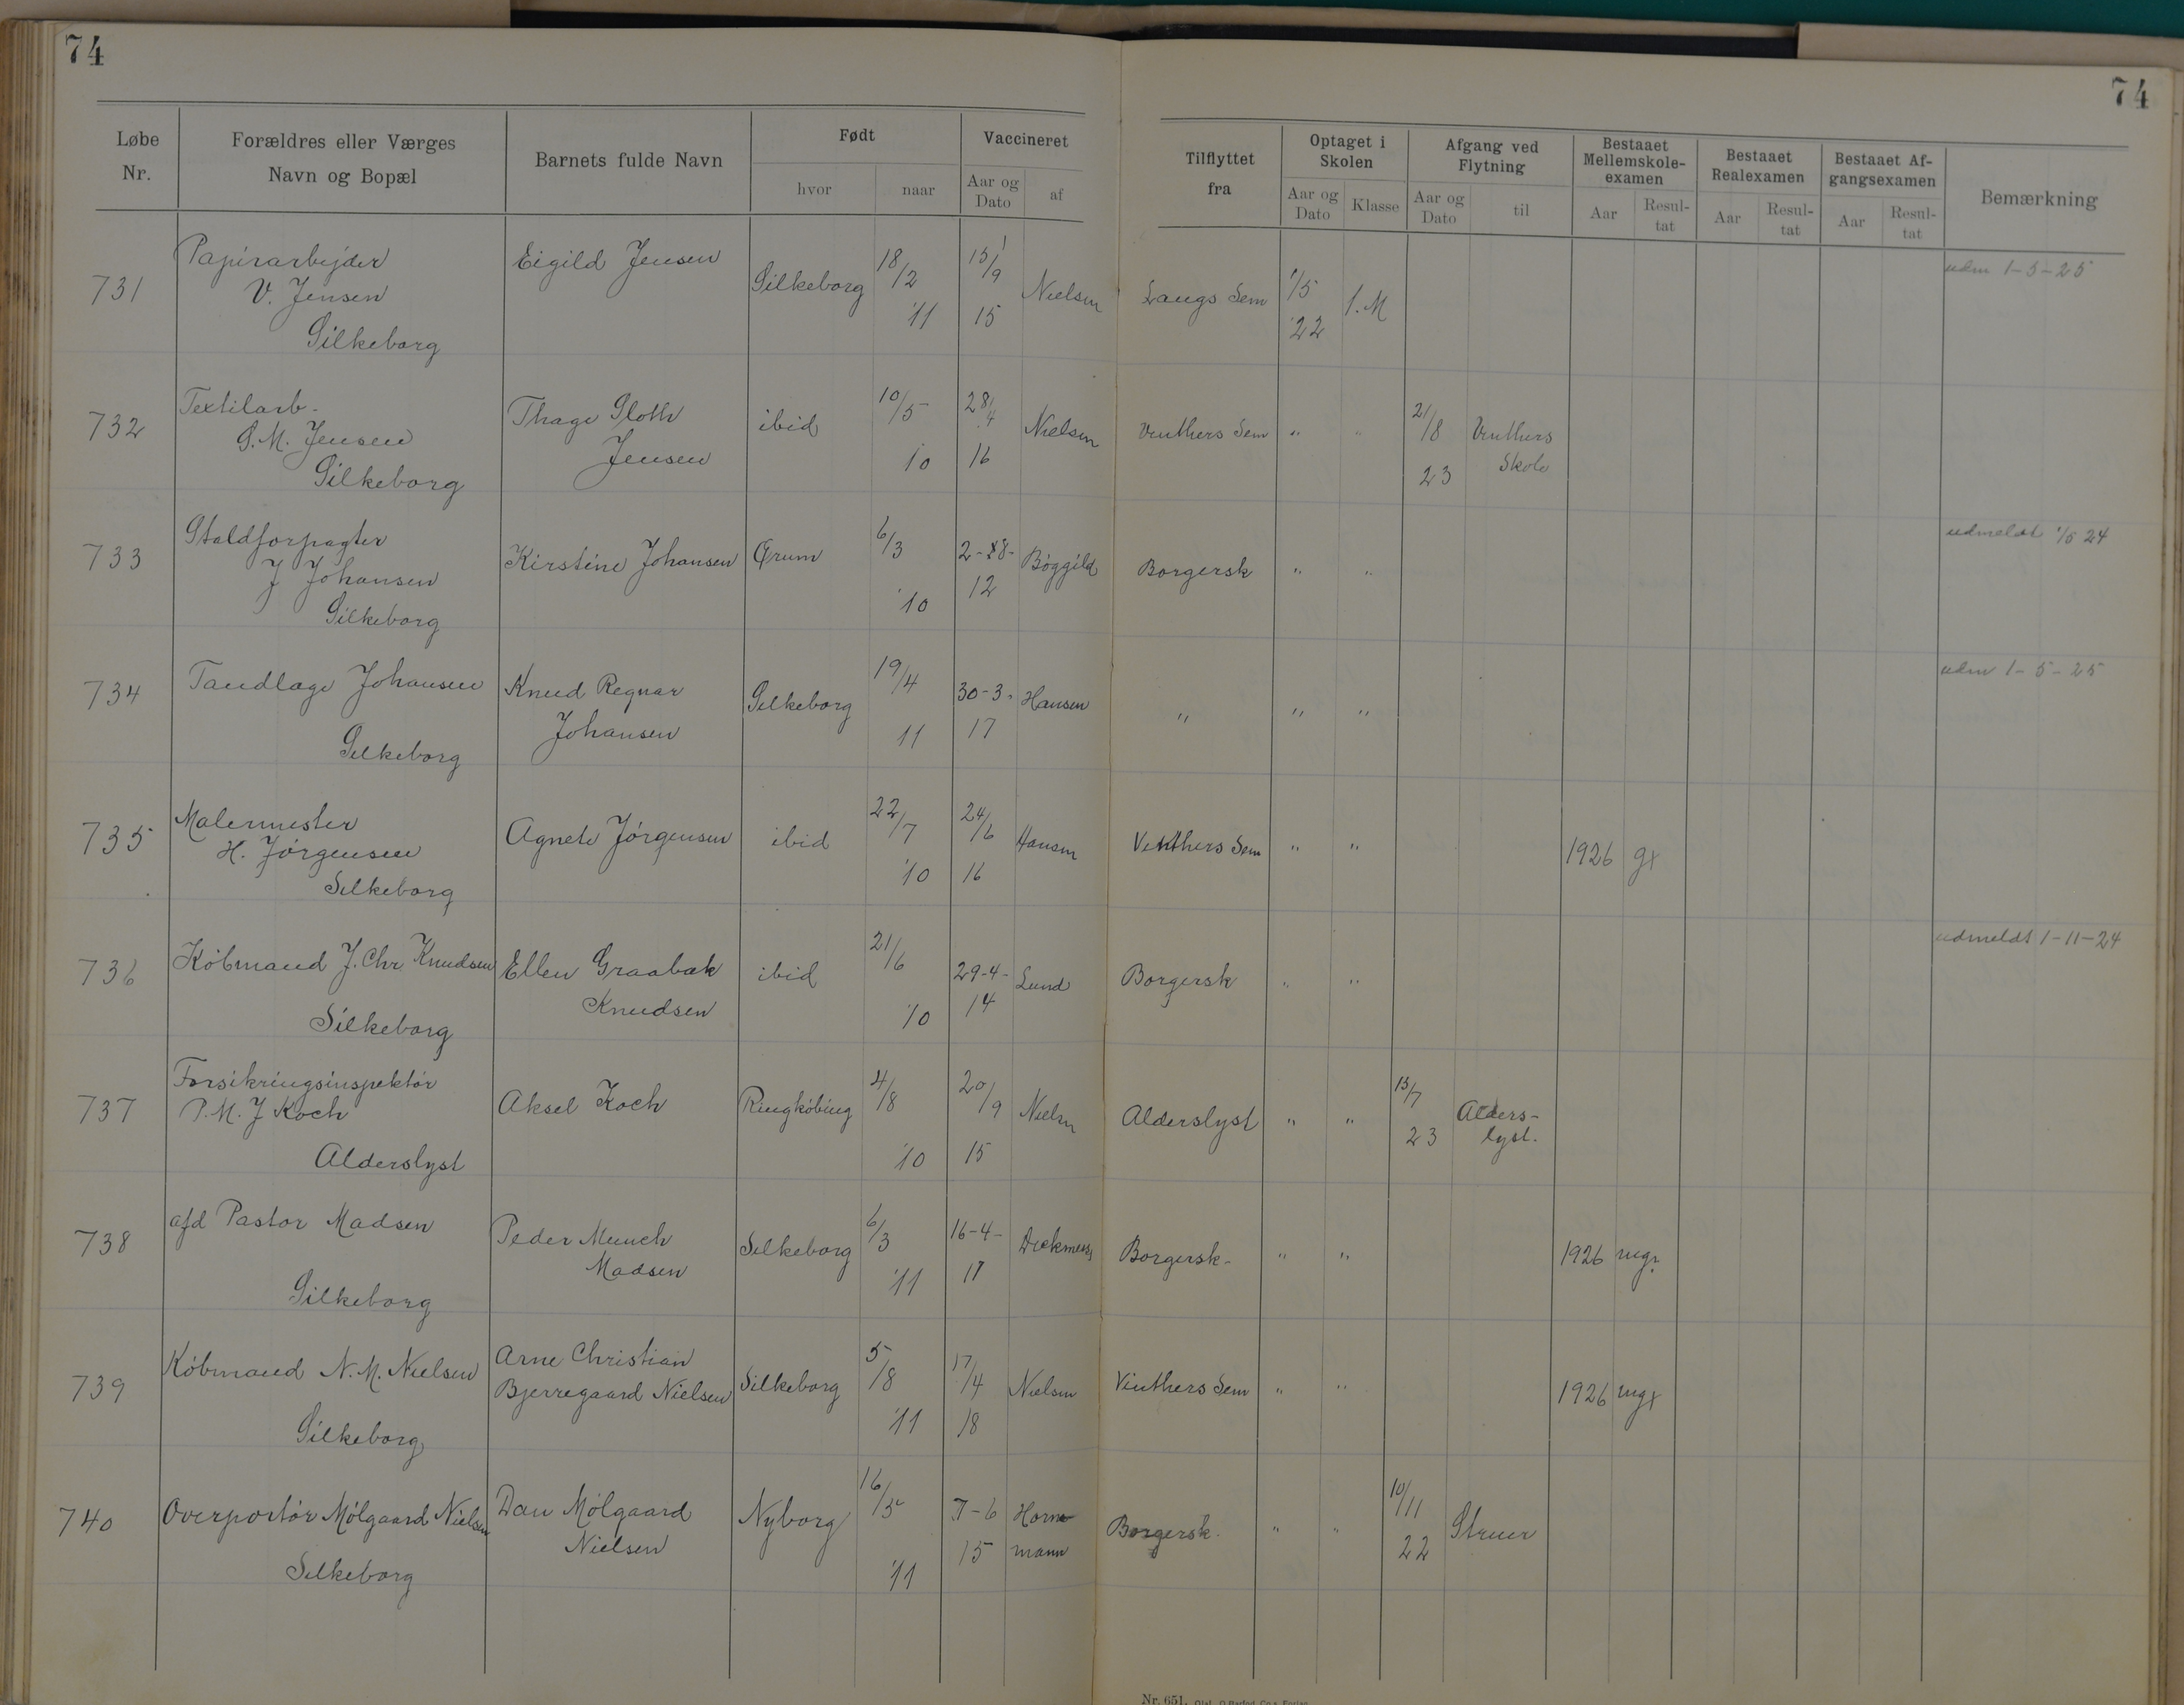 74
74
Løbe Nr.
Forældres eller Værges Navn og Bopæl
Barnets fulde Navn
Født
hvor
naar
Vaccineret
Aar og Dato
af
Tilflyttet fra
Optaget i Skolen
Aar og Dato
Klasse
Afgang ved Flytning
Aar og Dato
til
Bestaaet Mellemskole-examen
Aar
Resul-tat
Bestaaet Realexamen
Aar
Resul-tat
Bestaaet Af-gangsexamen
Aar
Resul-tat
Bemærkning
731 Papirarbejder V. Jensen Silkeborg Eigild Jensen Silkeborg 18/2 '11 15/9 15 Nielsen Langs Sem 1/5 22 1.M udm 1-5-25
732 Textilarb. S.M. Jensen Silkeborg Thage Sloth Jensen ibid 10/5 10 28/4 16 Nielsen Vinthers Sem " " 21/8 23 Vinthers Skole
733 Staldforpagter J Johansen Silkeborg Kirstine Johansen Ørum 6/3 '10 2-8-12 Bøggild Borgersk " " udmeldt 1/5 24
734 Tandlæge Johansen Silkeborg Knud Regnar Johansen Silkeborg 19/4 11 30-3-17 Hansen " " " udm 1-5-25
735 Malermester H. Jørgensen Silkeborg Agnete Jørgensen ibid 22/7 '10 24/6 16 Hansen Vinthers Sem " " 1926 g+
736 Købmand J. Chr. Knudsen Silkeborg Ellen Graabæk Knudsen ibid 21/6 '10 29-4-14 Lund Borgersk " " udmeldt 1-11-24
737 Forsikringsinspektør P.M. J Koch Alderslyst Aksel Koch Ringkøbing 4/8 '10 20/9 15 Nielsen Alderslyst " " 13/7 23 Alders-lyst.
738 afd Pastor Madsen Silkeborg Peder Munch Madsen Silkeborg 6/3 '11 16-4-17 Borgersk- " " 1926 mg÷
739 Købmand N.M. Nielsen Silkeborg Arne Christian Bjerregaard Nielsen Silkeborg 5/8 '11 17/4 18 Nielsen Vinthers Sem " " 1926 mg+
740 Overportør Mølgaard Nielsen Silkeborg Dan Mølgaard Nielsen Nyborg 16/5 '11 7-6 15 Hornemann Borgersk. " " 10/11 22 Struer
Nr. 651.